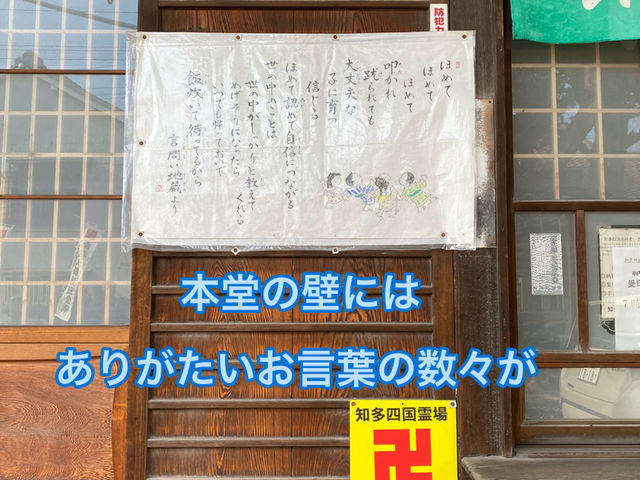 ほめて
ほめて
ほめて
叩かれ
蹴られても
大丈夫な
子に育つ
信じる
ほめて認めて自信につながる
世の中のことは
世の中がしっかりと教えてくれる
めげそうになったら
いつでも帰っておいで
飯炊いて待ってるから
言問い地蔵より
防犯カ
本堂の壁には
ありがたいお言葉の数々が
知多四国霊場
卍